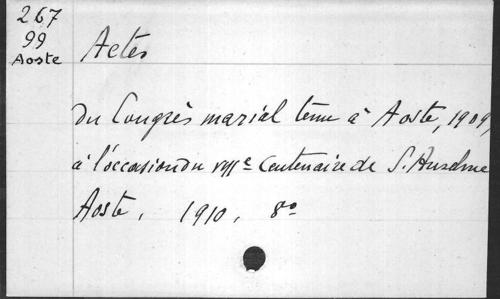 267
99
Aoste
Actes
du Congrès marial tenu à Aoste, 1909,
à l'occasion du VIIIe Centenaire de S. Anselme
Aoste, 1910, 8o